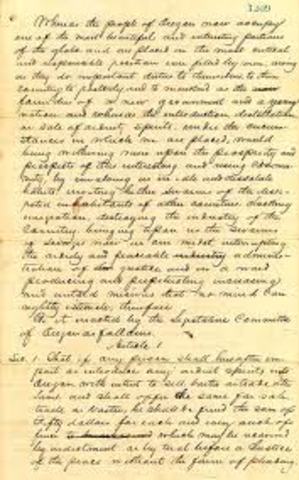 1209
Whereas the people of Oregon now occupy
one of the most beautiful and interesting portions
of the globe and are placed in the most critical
and responsible position ever filled by men, owing
as they do important duties to themselves to their
country to posterity and to mankind as the
founders of a new government and a young
nation and whereas the introduction distillation
or sale of ardent spirits, under the circum-
stances in which we are placed, would
bring withering ruin upon the prosperity and
prospects of this interesting and rising commu-
nity, by involving us in idle and dissolute
habits, inviting hither swarms of the
inhabitants of other countries checking
emigration, destroying the industry of the
country, bringing upon us the swarms
of savages now in our midst interrupting
the orderly and peaceable adminis-
tration of justice and in a word
producing and perpetuating increasing
and untold miseries that no mind can
rightly estimate therefore
Be it enacted by the Legislative Committee
of Oregon as follows.
Article 1
Sec. 1 That if any person shall hereafter im-
port or introduce any ardent spirits into
Oregon with intent to sell barter or trade the
same and shall offer the same for sale
trade or barter, he shall be fined the sum of
fifty dollars for each and every such of-
fence which may be recovered
by indictment or by trial before a Justice
of the peace without the form of pleading